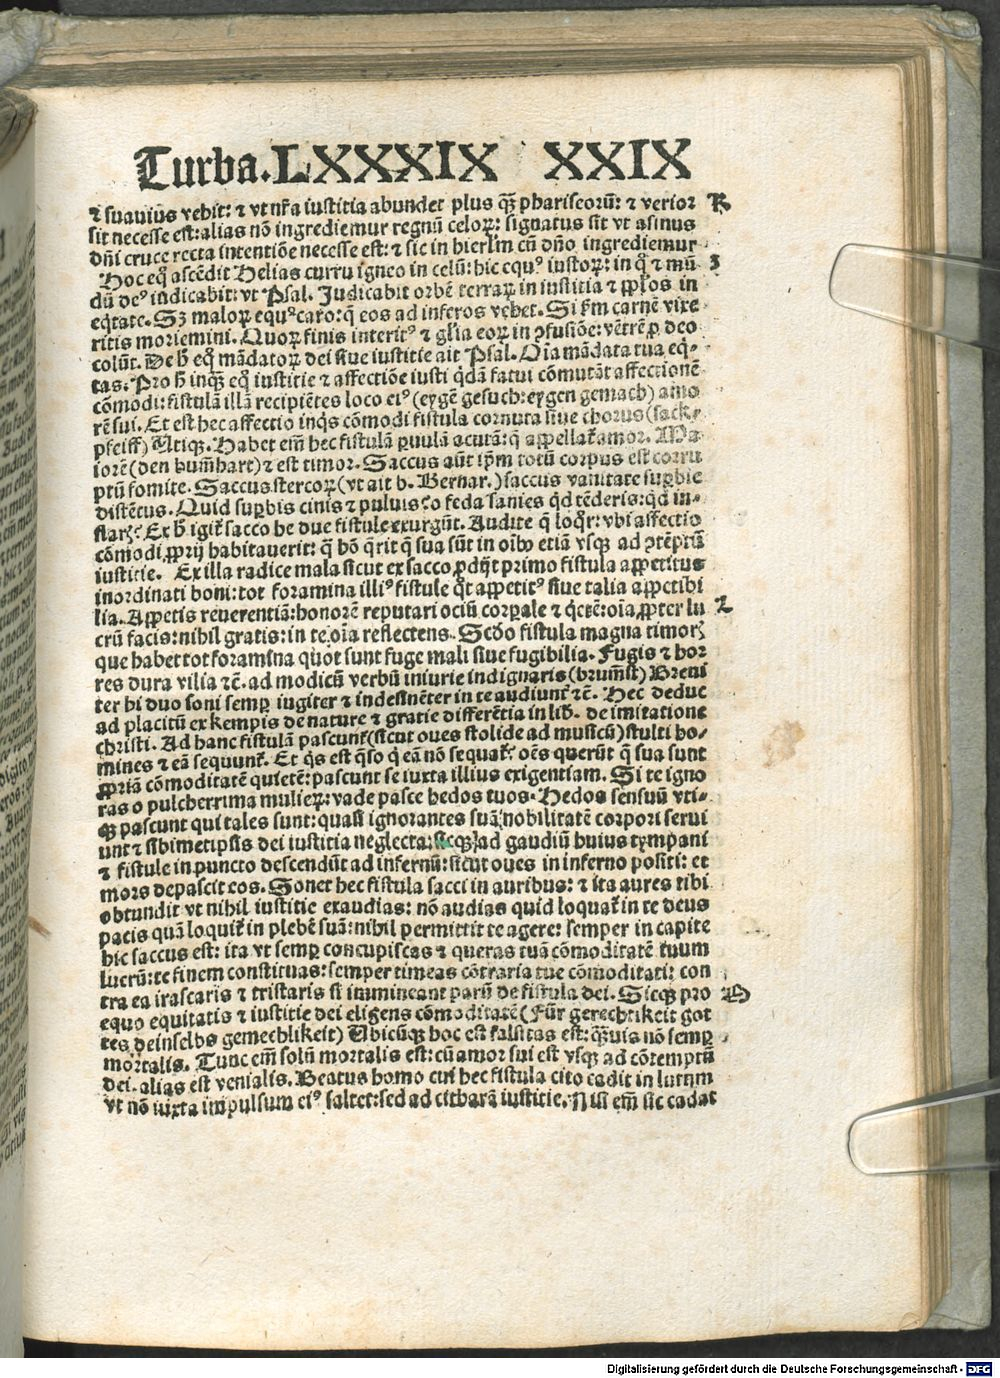 Turba. LXXXIX XXIX
⁊ suauius vehit: ⁊ vt nr̃a iusticia abundet plus qz̃ phariseorũ: ⁊ verior K
sit necesse est: alias nõ ingrediemur regnũ celoꝝ: signatus sit vt asinus
dñi cruce recta intentiõe necesse est: ⁊ sic in hierl̃m cũ dño ingrediemur
Hoc eq̃ ascẽdit Helias curru igneo in celũ: hic equꝰ iustoꝝ: in q̃ ⁊ mũ- 3
dũ deꝰ iudicabit: vt Psal. Judicabit orbẽ terraꝝ in iusticia ⁊ pp̃los in
eq̃tate. Sꝫ maloꝝ equꝰ caro: q̃ eos ad inferos vehet. Si fm carnẽ vixe
ritis moriemini. Quoꝝ finis interitꝰ ⁊ gl̃ia eoꝝ in ꝯfusiõe: vẽtrẽ ꝓ deo
colũt. De h̃ eq̃ mãdatoꝝ dei siue iusticie ait Psal. Oĩa mãdata tua eq̃-
tas. Pro h̃ inqꝫ eq̃ iusticie ⁊ affectiõe iusti q̃dã fatui cõmutãt affectionẽ
cõmodi: fistulã illã recipiẽtes loco eiꝰ (eygẽ gesuch: eygen gemach) amo
rẽ sui. Et est hec affectio inq̃s cõmodi fistula cornuta siue chorus (sack-
pfeiff) Utiqꝫ. Habet em̃ hec fistulã ꝑuulã acutã: q̃ appellat̃ amor. Ma-
iorẽ (den bum̃hart) ⁊ est timor. Saccus aũt ip̃m totũ corpus est corru
ptũ fomite. Saccus stercoꝝ (vt ait b. Bernar.) saccus vanitate suꝑbie
distẽtus. Quid suꝑbis cinis ⁊ puluis: o feda sanies qd tẽderis: qd in-
flaris. Ex h̃ igit̃ sacco he due fistule exurgũt. Audite q̃ loq̃r: vbi affectio
cõmodi ꝓprij habitauerit: q̃ hõ q̃rit q̃ sua sũt in oĩbꝰ etiã vsqꝫ ad ꝯtẽptũ
iusticie. Ex illa radice mala sicut ex sacco ꝓdijt primo fistula appetitus
inordinati boni: tot foramina illiꝰ fistule q̃t appetitꝰ siue talia appetibi
lia. Appetis reuerentiã: honorẽ reputari ociũ corꝑale ⁊ q̃etẽ: oĩa ꝓpter lu L
crũ facis: nihil gratis: in te oĩa reflectens. Scd̃o fistula magna timor:
que habet tot foramina quot sunt fuge mali siue fugibilia. Fugis ⁊ hor
res dura vilia ⁊c̃. ad modicũ verbũ iniurie indignaris (brum̃st) Breui
ter hi duo soni semꝑ iugiter ⁊ indesinẽter in te audiunt̃ ⁊c̃. Hec deduc
ad placitũ ex kempis de nature ⁊ gratie differẽtia in lib̃. de imitatione
christi. Ad hanc fistulã pascunt̃ (sicut oues stolide ad musicũ) stulti ho-
mines ⁊ eã sequunt̃. Et q̃s est q̃so q̃ eã nõ sequat̃: oẽs querũt q̃ sua sunt
ꝓpriã cõmoditatẽ quietẽ: pascunt se iuxta illius exigentiam. Si te igno
ras o pulcherrima mulieꝝ: vade pasce hedos tuos. Hedos sensuũ vti-
qꝫ pascunt qui tales sunt: quasi ignorantes suã nobilitatẽ corpori serui
unt ⁊ sibimetipsis dei iusticia neglecta: sicqꝫ ad gaudiũ huius tympani
⁊ fistule in puncto descendũt ad infernũ: sicut oues in inferno positi: et
mors depascit eos. Sonet hec fistula sacci in auribus: ⁊ ita aures tibi
obtundit vt nihil iusticie exaudias: nõ audias quid loquat̃ in te deus
pacis quã loquit̃ in plebẽ suã: nihil permittit te agere: semper in capite
hic saccus est: ita vt semꝑ concupiscas ⁊ queras tuã cõmoditatẽ tuum
lucrũ: te finem constituas: semper timeas cõtraria tue cõmoditati: con
tra ea irascaris ⁊ tristaris si immineant parũ de fistula dei. Sicqꝫ pro M
equo equitatis ⁊ iusticie dei eligens cõmoditatẽ (Für gerechtikeit got
tes deinselbs gemechlikeit) Ubicũqꝫ hoc est falsitas est: q̃uis nõ semꝑ
mortalis. Tunc em̃ solũ mortalis est: cũ amor sui est vsqꝫ ad cõtemptũ
dei. alias est venialis. Beatus homo cui hec fistula cito cadit in lutum
vt nõ iuxta impulsum eiꝰ saltet: sed ad citharã iusticie. Nisi em̃ sic cadat
Digitalisierung gefördert durch die Deutsche Forschungsgemeinschaft - DFG